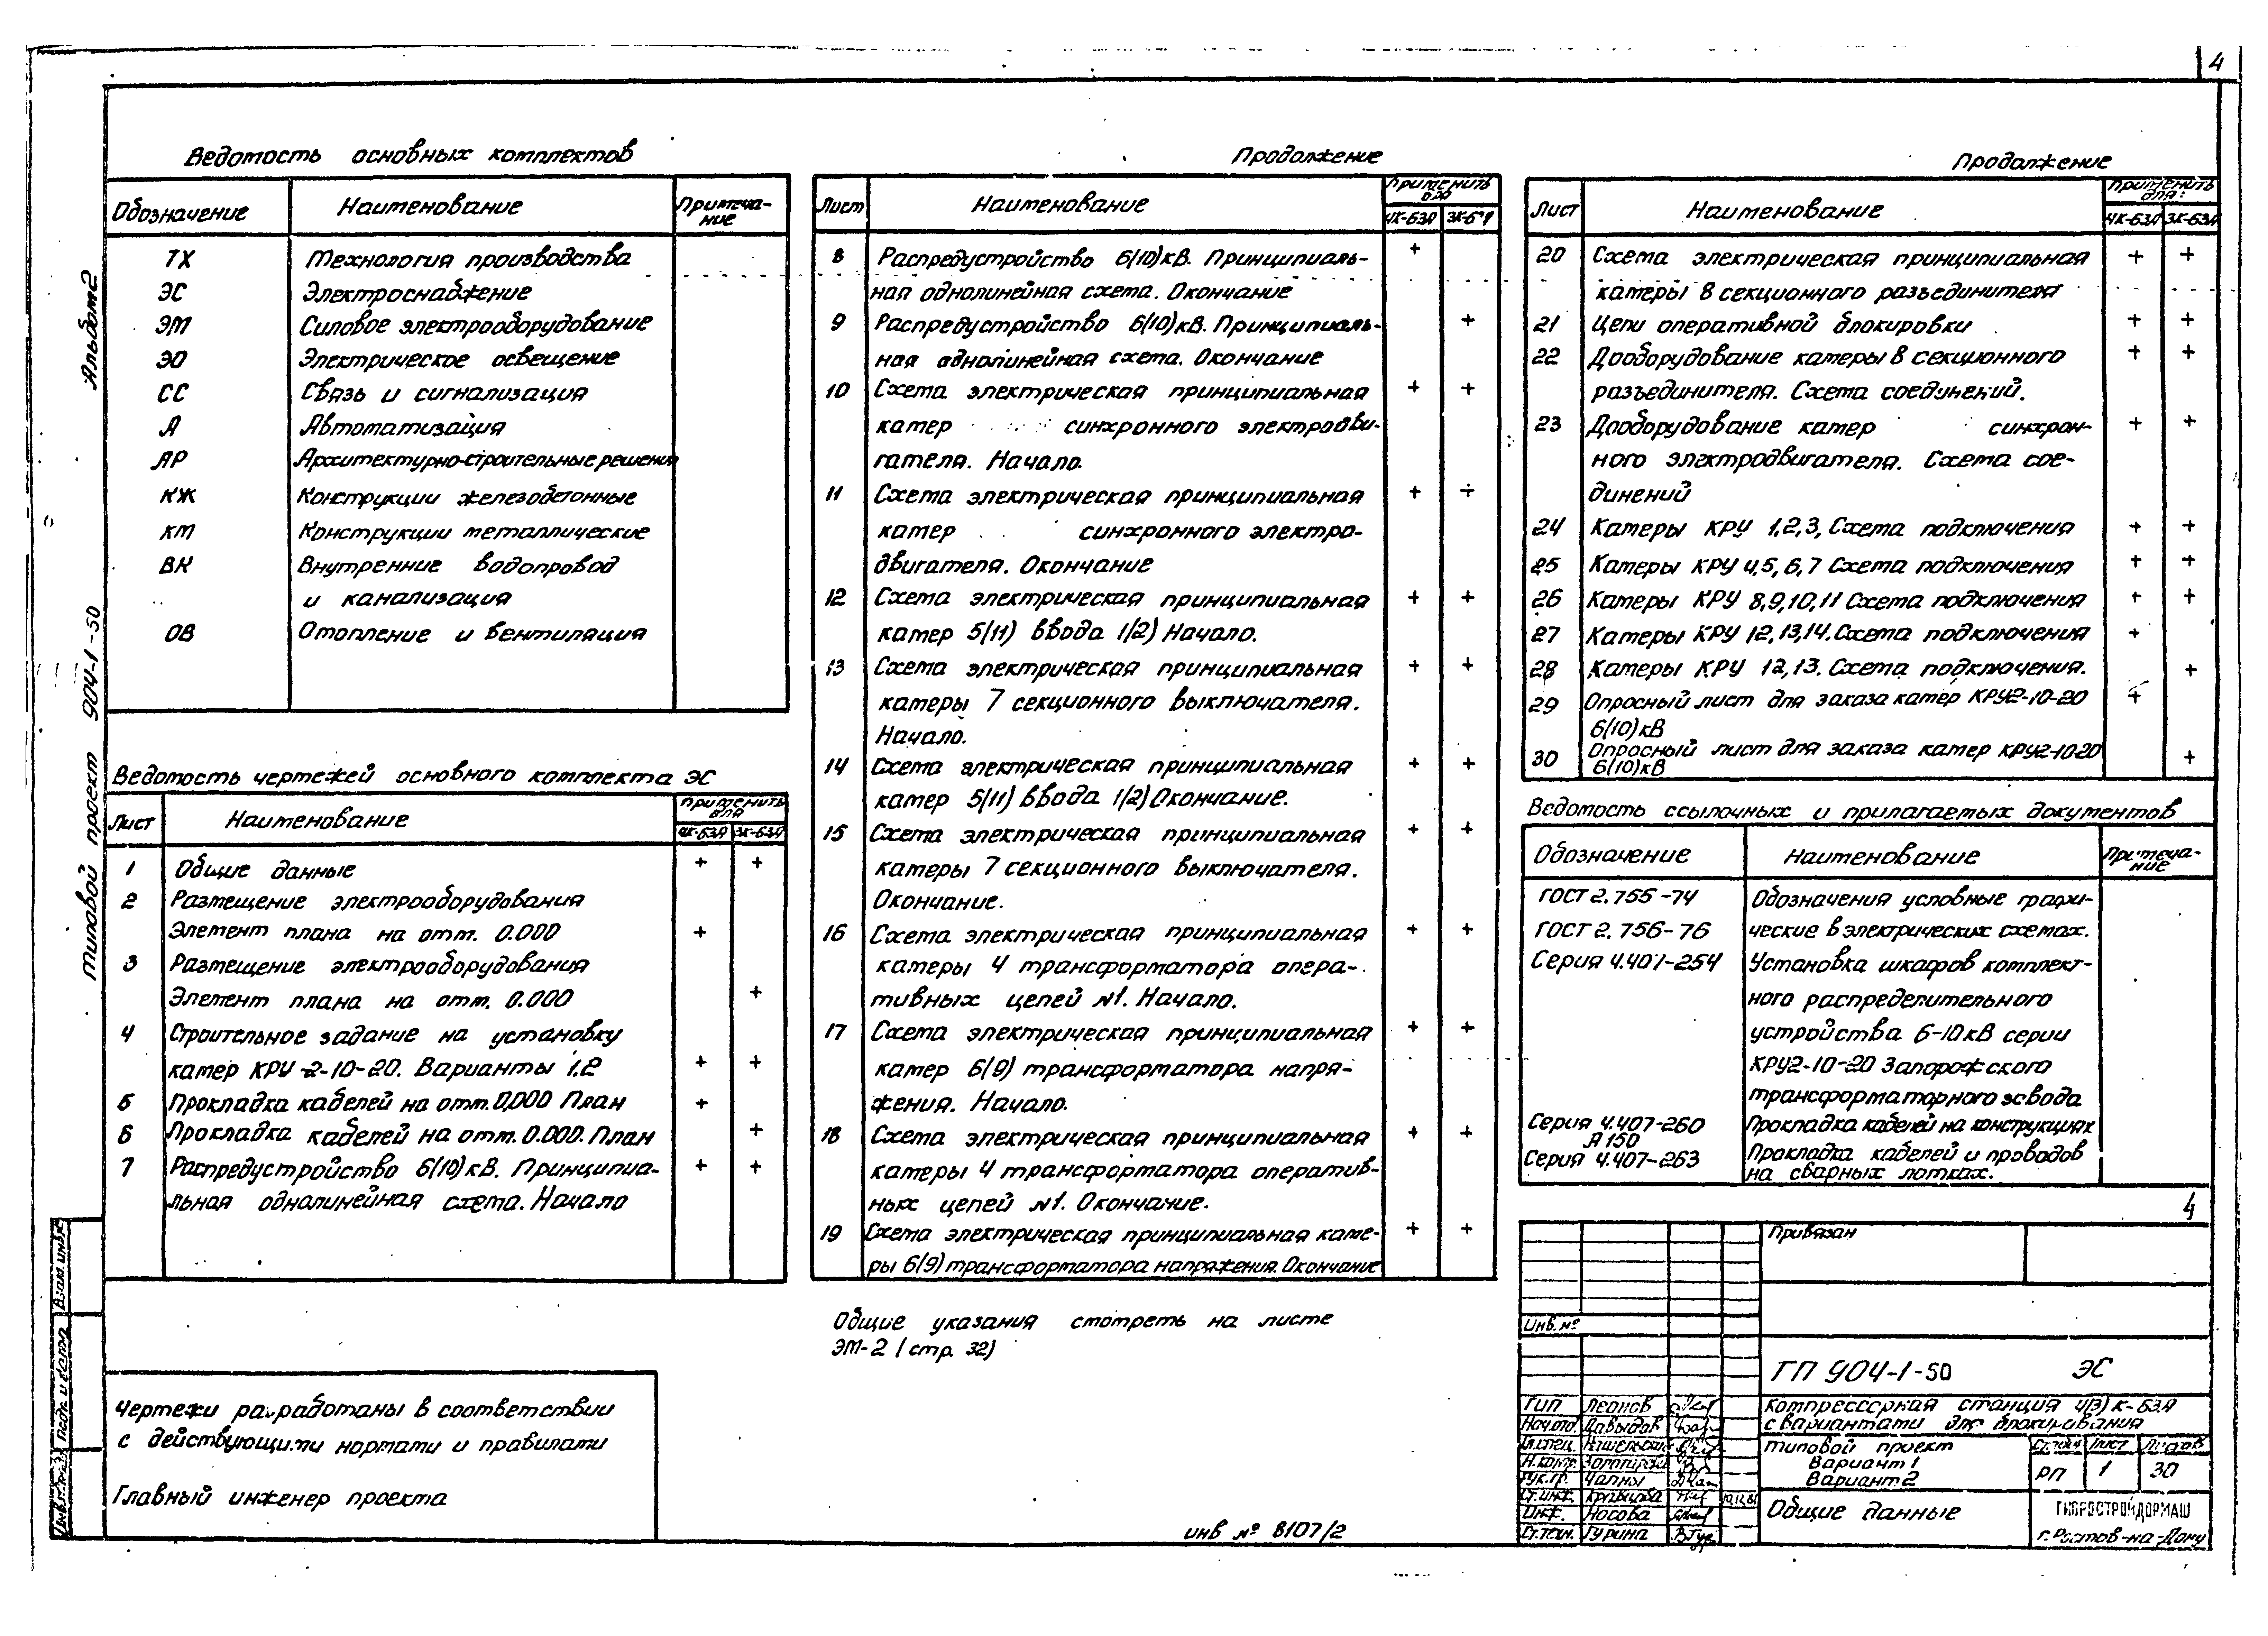 4
Альбом 2
Типовой проект 904-1-50
Ведомость основных комплектов
Обозначение Наименование Примеча-
ние
ТХ Технология производства
ЭС Электроснабжение
ЭМ Силовое электрооборудование
ЭО Электрическое освещение
СС Связь и сигнализация
А Автоматизация
АР Архитектурно-строительные решения
КЖ Конструкции железобетонные
КМ Конструкции металлические
ВК Внутренние водопровод
и канализация
ОВ Отопление и вентиляция
Ведомость чертежей основного комплекта ЭС
Лист Наименование Применить
для
4К-63А 3К-63А
1 Общие данные + +
2 Размещение электрооборудования
Элемент плана на отм. 0.000 +
3 Размещение электрооборудования
Элемент плана на отм. 0.000 +
4 Строительное задание на установку
камер КРУ-2-10-20. Варианты 1,2 + +
5 Прокладка кабелей на отм. 0,000 План +
6 Прокладка кабелей на отм. 0.000. План +
7 Распредустройство 6(10)кВ. Принципиа- + +
льная однолинейная схема. Начало
Чертежи разработаны в соответствии
с действующими нормами и правилами
Главный инженер проекта
Продолжение
Лист Наименование Применить
для
4К-63А 3К-63А
8 Распредустройство 6(10)кВ. Принципиаль- +
ная однолинейная схема. Окончание
9 Распредустройство 6(10)кВ. Принципиаль- +
ная однолинейная схема. Окончание
10 Схема электрическая принципиальная + +
камер синхронного электродви-
гателя. Начало.
11 Схема электрическая принципиальная + +
камер синхронного электро-
двигателя. Окончание
12 Схема электрическая принципиальная + +
камер 5(11) ввода 1(2) Начало.
13 Схема электрическая принципиальная + +
камеры 7 секционного выключателя.
Начало.
14 Схема электрическая принципиальная + +
камер 5(11) ввода 1(2) Окончание.
15 Схема электрическая принципиальная + +
камеры 7 секционного выключателя.
Окончание.
16 Схема электрическая принципиальная + +
камеры 4 трансформатора опера-
тивных цепей №1. Начало.
17 Схема электрическая принципиальная + +
камер 6(9) трансформатора напря-
жения. Начало.
18 Схема электрическая принципиальная + +
камеры 4 трансформатора оператив-
ных цепей №1. Окончание.
19 Схема электрическая принципиальная каме- + +
ры 6(9) трансформатора напряжения. Окончание
Общие указания смотреть на листе
ЭМ-2 (стр. 32)
инв № 8107/2
Продолжение
Лист Наименование Применить
для:
4К-63А 3К-63А
20 Схема электрическая принципиальная + +
камеры 8 секционного разъединителя
21 Цепи оперативной блокировки + +
22 Дооборудование камеры 8 секционного + +
разъединителя. Схема соединений.
23 Дооборудование камер синхрон- + +
ного электродвигателя. Схема сое-
динений
24 Камеры КРУ 1,2,3, Схема подключения + +
25 Камеры КРУ 4,5,6,7 Схема подключения + +
26 Камеры КРУ 8,9,10,11 Схема подключения + +
27 Камеры КРУ 12,13,14. Схема подключения +
28 Камеры КРУ 12,13. Схема подключения. +
29 Опросный лист для заказа камер КРУ2-10-20 +
6(10)кВ
30 Опросный лист для заказа камер КРУ2-10-20 +
6(10)кВ
Ведомость ссылочных и прилагаемых документов
Обозначение Наименование Примеча-
ние
ГОСТ 2.755-74 Обозначения условные графи-
ГОСТ 2.756-76 ческие в электрических схемах.
Серия 4.407-254 Установка шкафов комплект-
ного распределительного
устройства 6-10кВ серии
КРУ2-10-20 Запорожского
трансформаторного завода
Серия 4.407-260 Прокладка кабелей на конструкциях
А 150
Серия 4.407-263 Прокладка кабелей и проводов
на сварных лотках.
4
Привязан
Инв. №
ТП 904-1-50 ЭС
ГИП Леонов
Нач.отд. Давыдов
Гл.спец.
Н.контр.
Рук.гр. Чапны
Ст.инж. Кравцова
Инж. Носова
Ст.техн. Гурина
Компрессорная станция 4(3)К-63А
с вариантами для блокирования
Типовой проект
Вариант 1
Вариант 2
Стадия Лист Листов
РП 1 30
Общие данные
ГИПРОСТРОЙДОРМАШ
г. Ростов-на-Дону
Взам. инв. №
Подп. и дата
Инв. № подл.